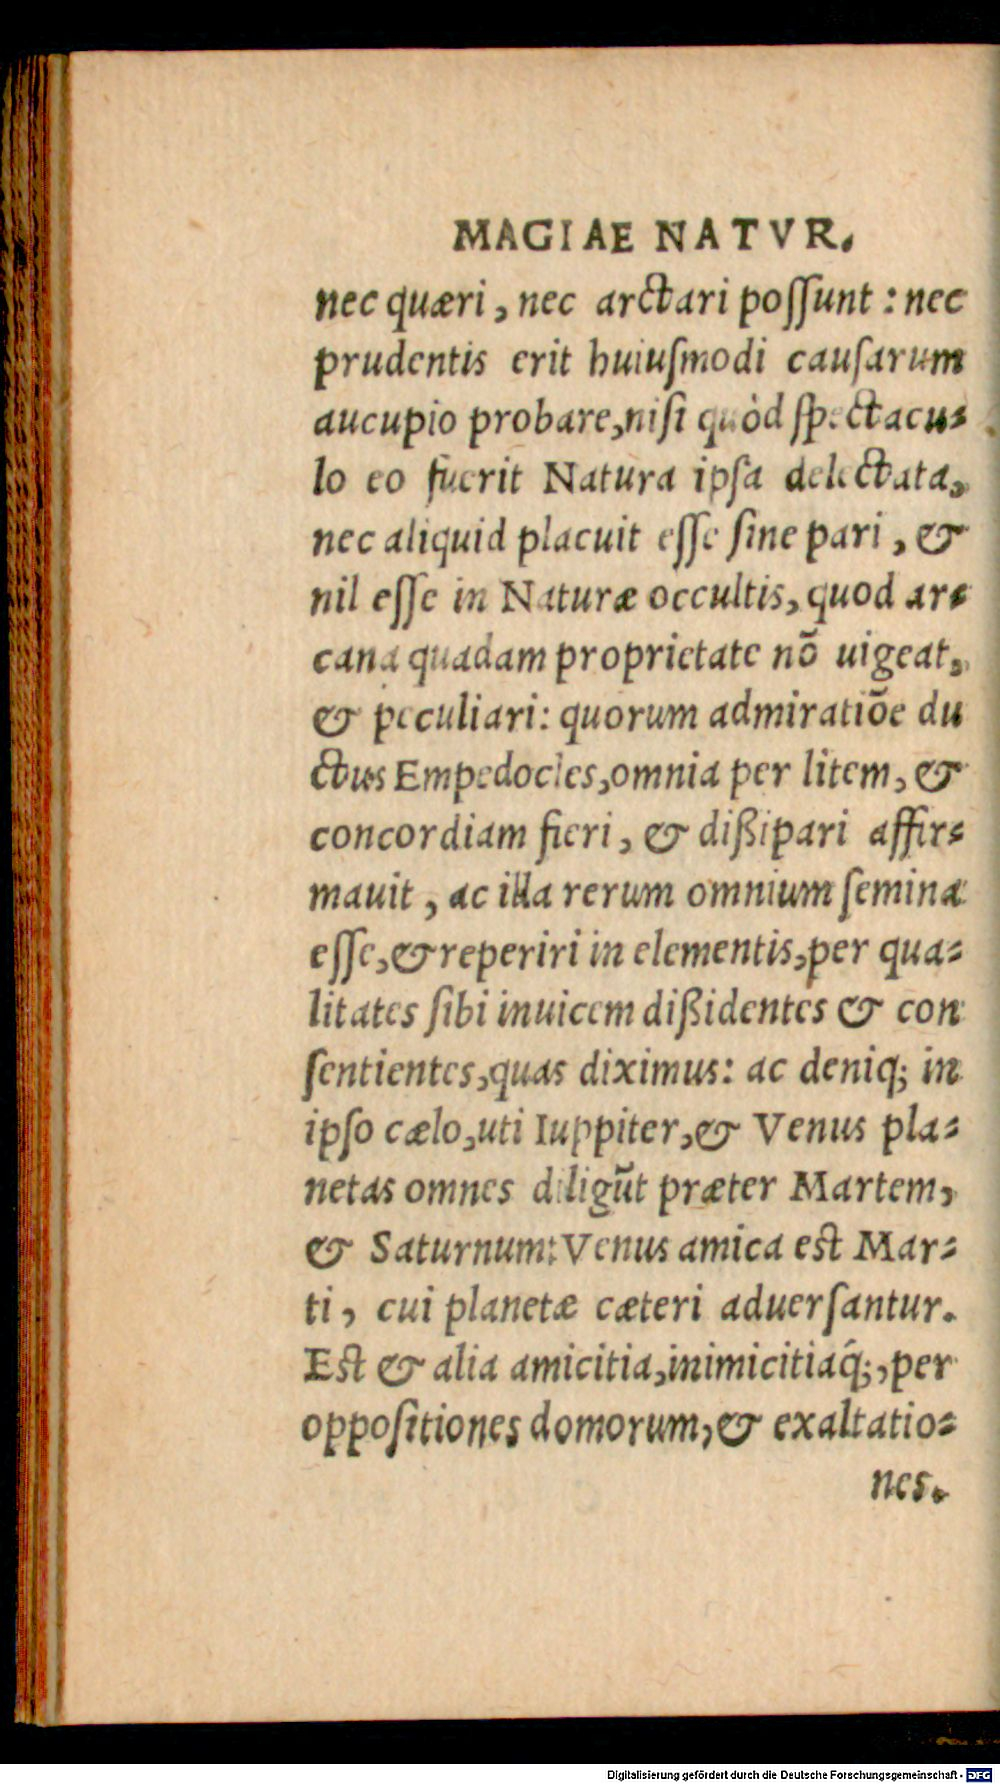 MAGIAE NATVR.
nec quæri, nec arctari poſſunt: nec
prudentis erit huiuſmodi cauſarum
aucupio probare, niſi quòd ſpectacu-
lo eo fuerit Natura ipſa delectata,
nec aliquid placuit eſſe ſine pari, &
nil eſſe in Naturæ occultis, quod ar-
cana quadam proprietate nō uigeat,
& peculiari: quorum admiratiōe du
ctus Empedocles, omnia per litem, &
concordiam fieri, & dißipari affir-
mauit, ac illa rerum omnium ſemina
eſſe, & reperiri in elementis, per qua-
litates ſibi inuicem dißidentes & con
ſentientes, quas diximus: ac deniq; in
ipſo cælo, uti Iuppiter, & Venus pla-
netas omnes diligūt præter Martem,
& Saturnum: Venus amica est Mar-
ti, cui planetæ cæteri aduerſantur.
Est & alia amicitia, inimicitiaq́;, per
oppoſitiones domorum, & exaltatio-
nes.
Digitalisierung gefördert durch die Deutsche Forschungsgemeinschaft - DFG